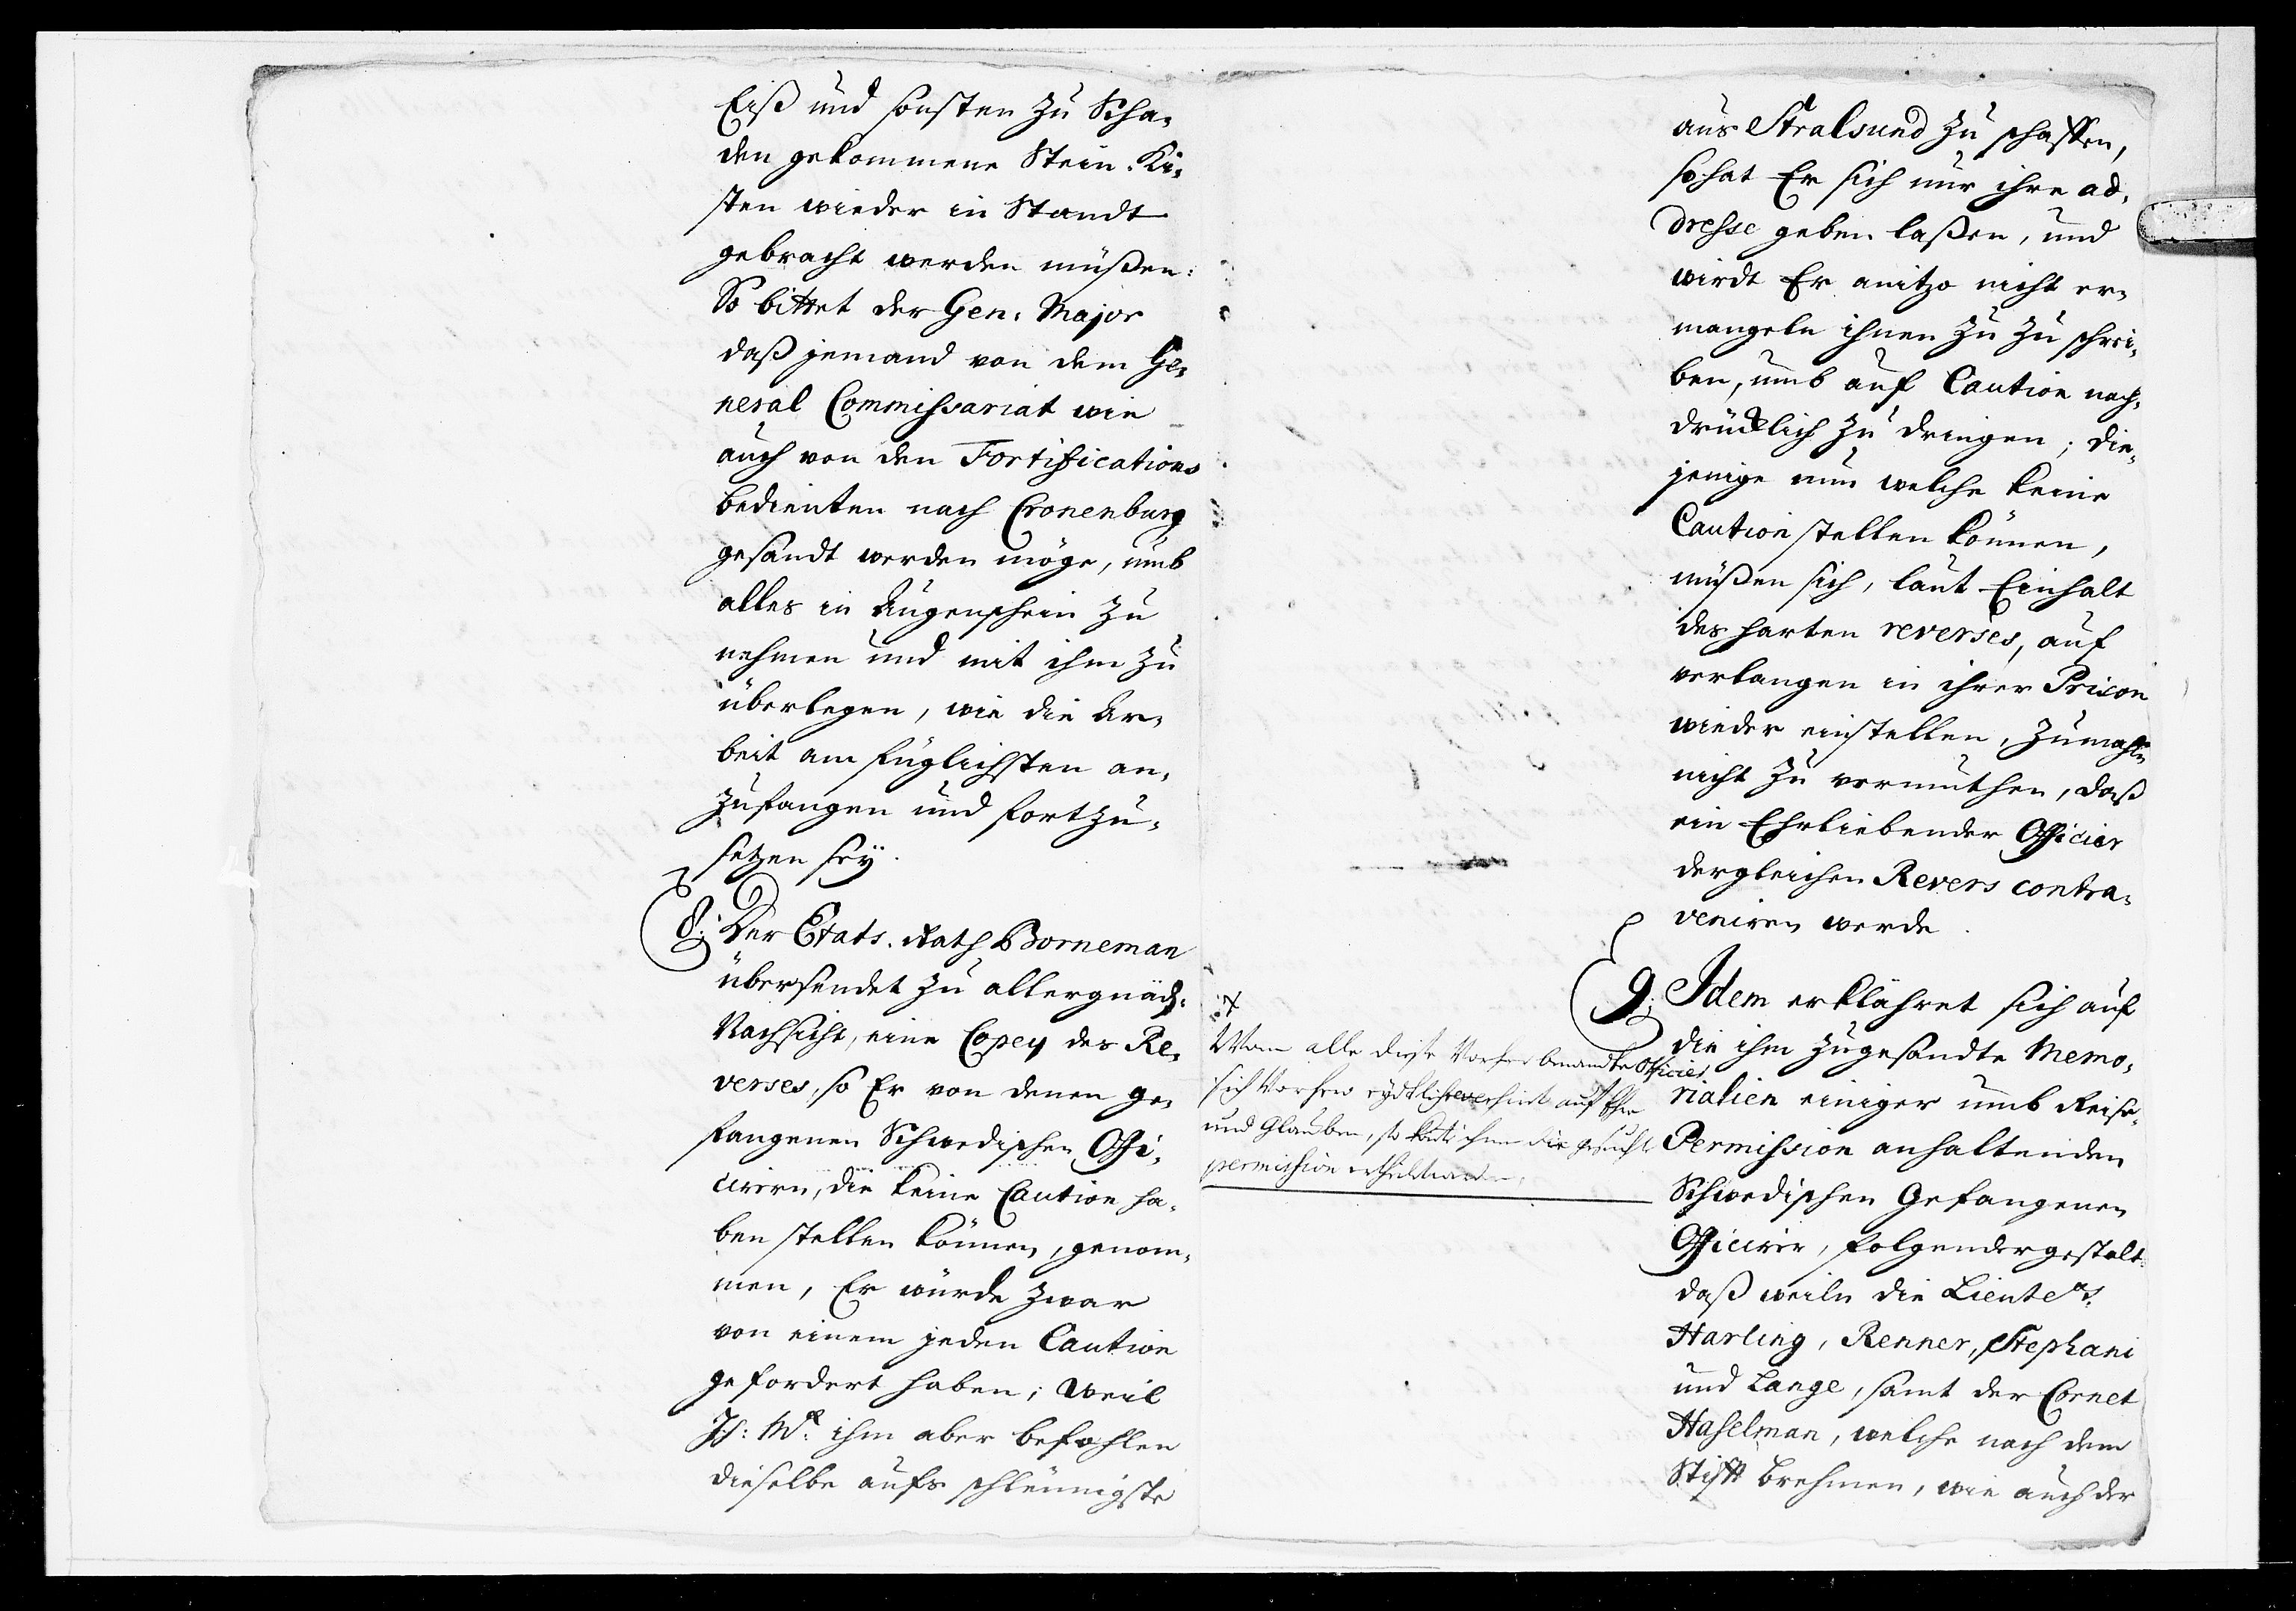 Eiß und sonsten zu Scha-
den gekommene Stein-Ki-
sten wieder in Standt
gebracht werden müßen:
So bittet der Gen: Major
daß jemand von dem Ge-
neral Commissariat wie
auch von den Fortifications
bedienten nach Cronenburg
gesandt werden möge, umb
alles in Augenschein zu
nehmen und mit ihm zu
überlegen, wie die Ar-
beit am füglichsten an-
zufangen und fortzu-
setzen sey.
8: Der Etats-Rath Borneman
übersendet zu allergnäd:
Nachsicht, eine Copey des Re-
verses, so Er von denen ge-
fangenen Schwedischen Offi-
cirern, die keine Caution ha-
ben stellen können, genom-
men, Er würde zwar
von einem jeden Caution
gefordert haben; weil
Ih: M: ihm aber befohlen
dieselbe aufs schleunigste
aus Stralsund zu schaffen,
so hat Er sich nur ihre ad-
dresse geben laßen, und
wirdt Er anitzo nicht er-
mangeln ihnen zu zu schrei-
ben, umb auf Caution nach-
drücklich zu dringen; die-
jenige nun welche keine
Caution stellen können,
müßen sich, laut Einhalt
des harten reverses, auf
verlangen in ihrer Prison
wieder einstellen, zumahln
nicht zu vermuthen, daß
ein Ehrliebender Officier
dergleichen Revers contra-
veniren werde.
9: Idem erklähret sich auf
die ihm zugesandte Memo-
rialien einiger umb Reise-
Permission anhaltenden
Schwedischen Gefangenen
Officirer, folgendergestalt:
daß weiln die Lieute^ts.
Harling, Renner, Stephani
und Lange, samt der Cornet
Haselman, welche nach dem
Stifft Brehmen, wie auch der
Wan alle diese Vorher benandte Officier
sich Vorher auf Ehre
und Glauben, so ihnen die gesuchte
permission